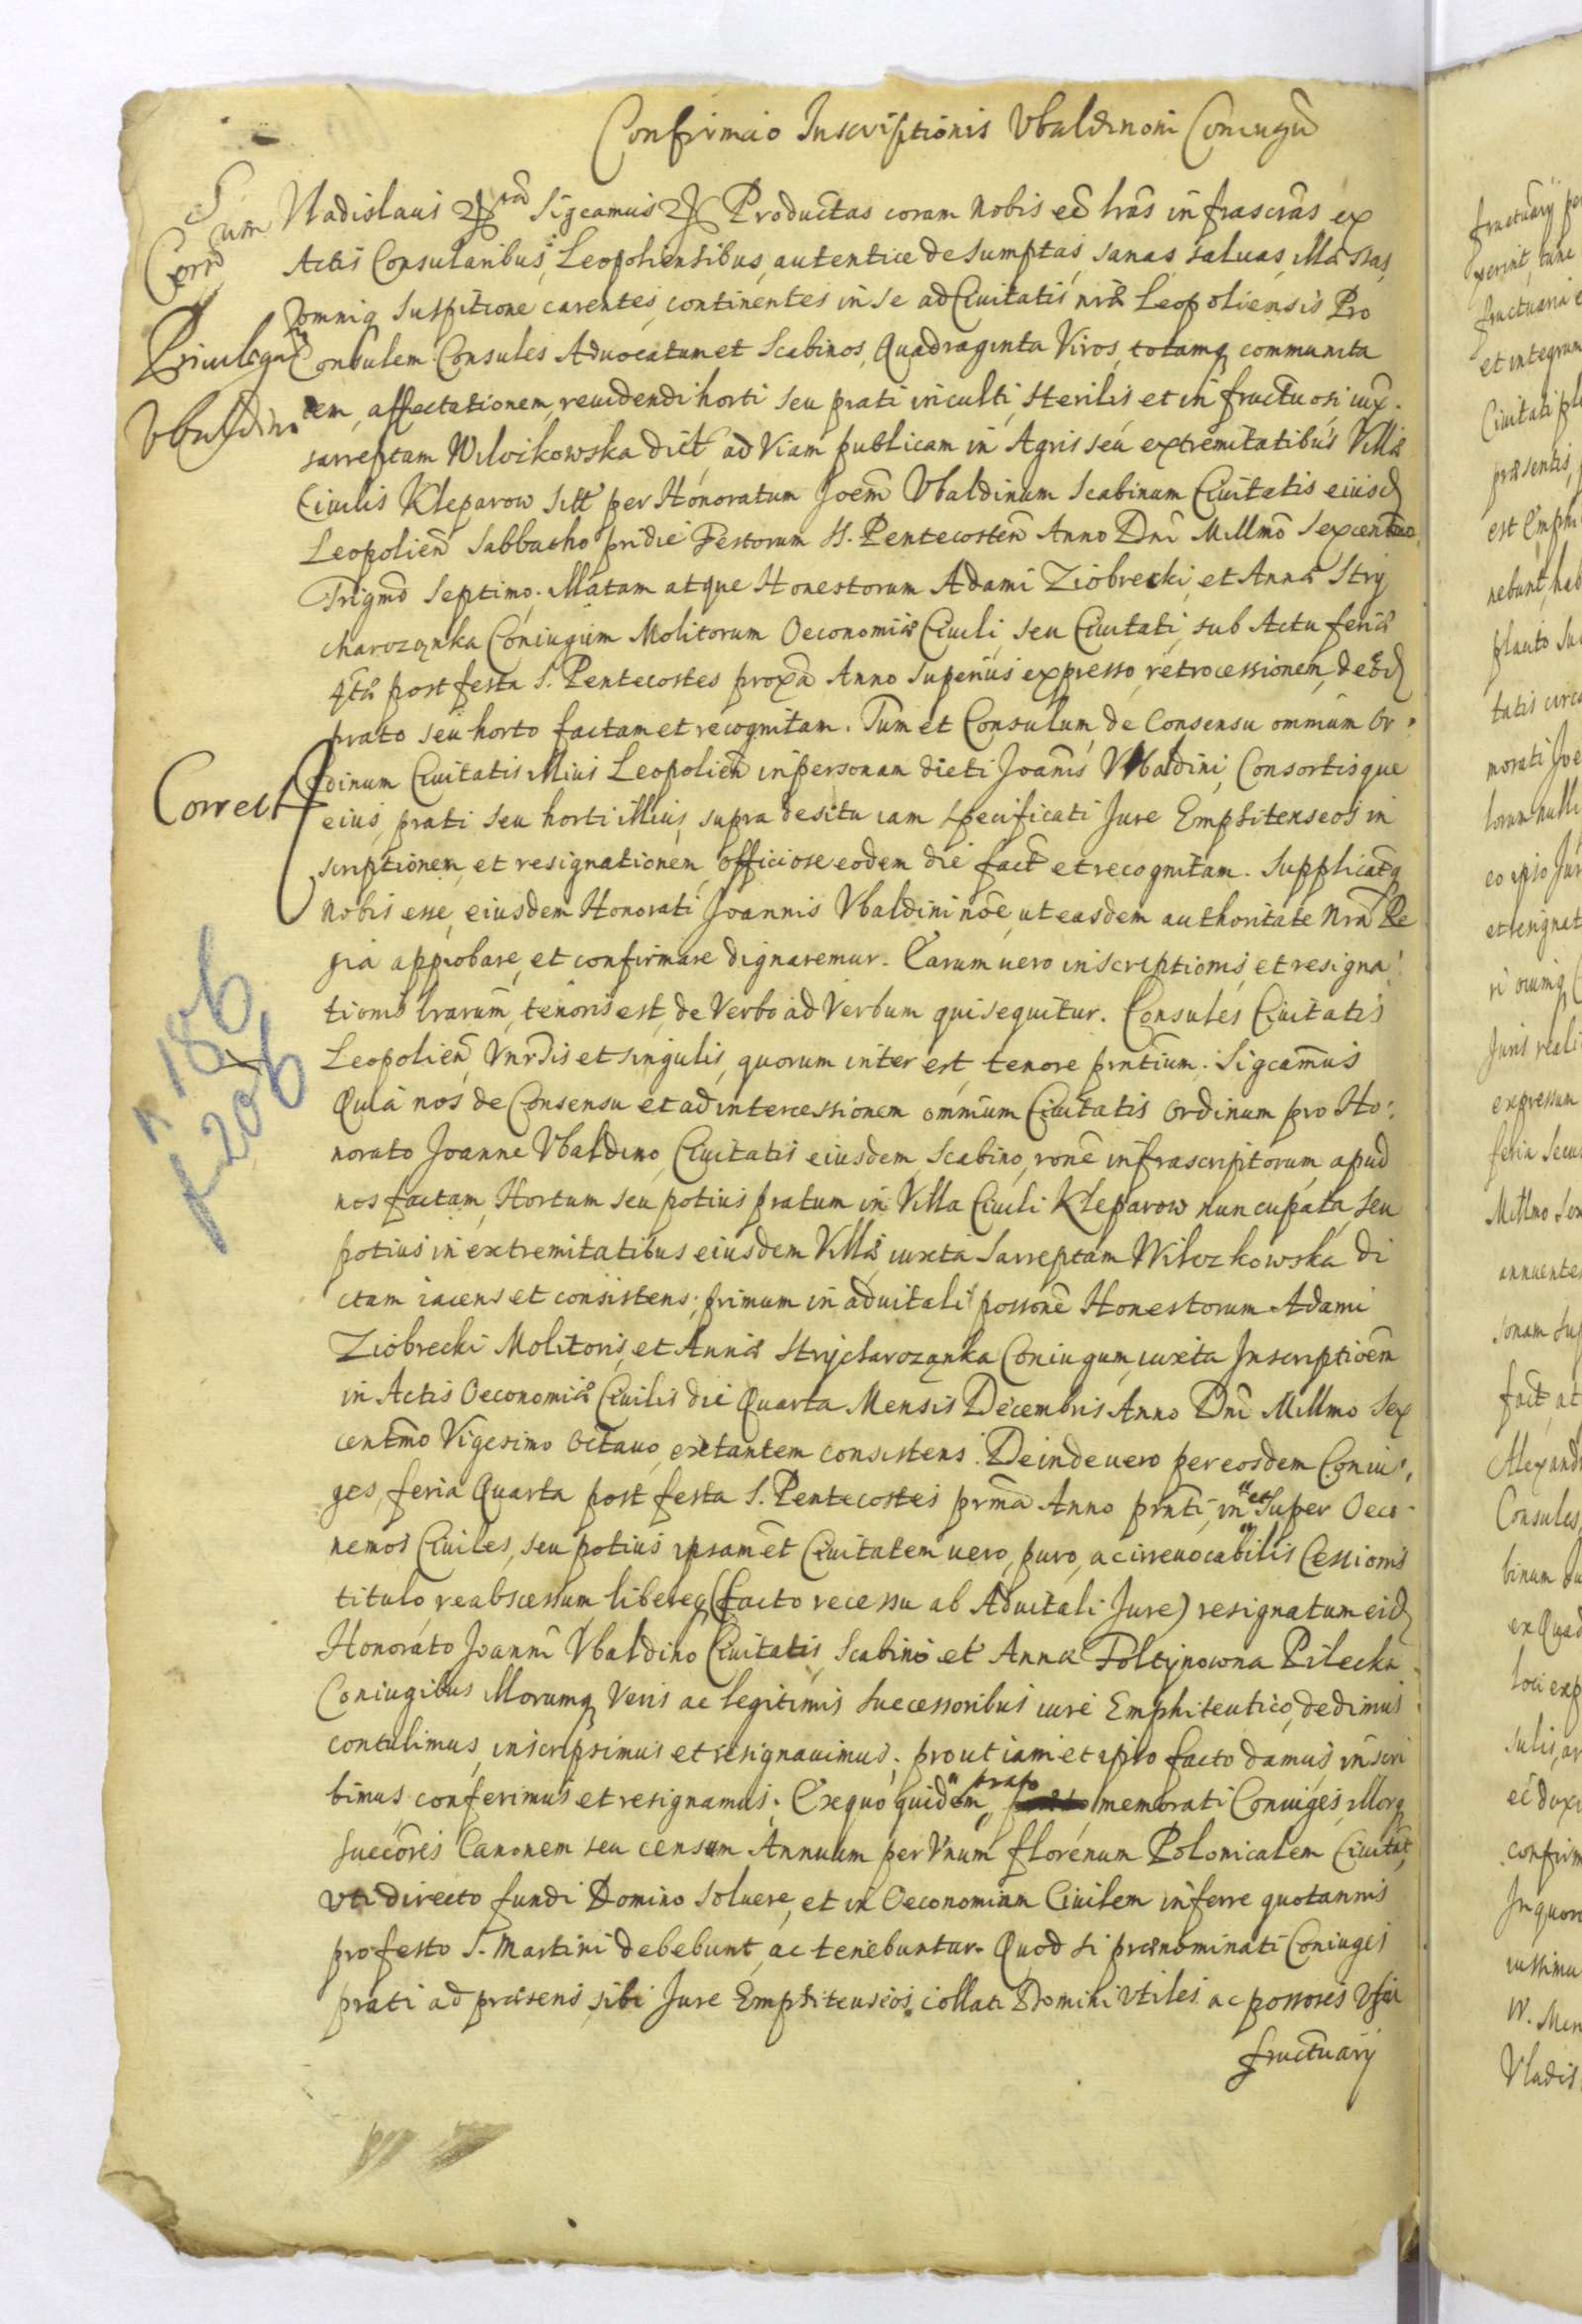 Confirmao Inscriptionis Vbaldinoni Coniugũ
Vladislaus Sigcamus Productas coram nobis eē lrãs infrascrãs ex
Actis Consularibus Leopoliensibus autentice desumptas, sanas saluas, illæsas,
omniq suspitione carentes, continentes in se ad Ciuitatis nræ Leopoliensis Pro
Consulem Consules Aduocatum et Scabinos, Quadraginta Viros, totamq communita
tem, affectationem, reuidendi horti seu prati inculti, sterilis et infructuosi iux
sarreptam Wilczkowska dict, ad Viam publicam in Agris seu extremitatibus Villæ
Ciuilis Kleparow sitt per Honoratum Joem̃ Vbaldinum Scabinum Ciuitatis eiusd
Leopolieñ Sabbatho pridie Festorum S. Pentecosteñ Anno Dnĩ Millmõ Sexcentmo
Trigmõ Septimo. Illatam atque Honestorum Adami Ziobrecki et Annæ Stry
charoząnka Coniugum Molitorum Oeconomiæ Ciuili, seu Ciuitati, sub Actu feriæ
4tæ post festa S. Pentecostes proxã Anno superius expresso, retrocessionem, de eod
prato seu horto factam et recognitam. Tum et Consulum, de Consensu omnium Or
dinum Ciuitatis illius Leopolieñ in personam dicti Joannis Vbaldini, Consortisque
eius, prati seu horti illius, supra de situ iam specificati Jure Emphiteuseos in
scriptionem, et resignationem, officiose eodem die fact et recognitam. Supplicatq
nobis esse, eiusdem Honorati Joannis Vbaldini nõe, ut easdem authoritate Nrã Re
gia approbare, et confirmare dignaremur. Earum uero inscriptionis, et resigna
tionis lrarum, tenoris est, de Verbo ad Verbum qui sequitur. Consules Ciuitatis
Leopolieñ, Vnrdis et singulis, quorum inter est, tenore prntium. Sigcamus
Quia nos de Consensu et ad intercessionem omnium Ciuitatis Ordinum pro Ho
norato Joanne Vbaldino, Ciuitatis eiusdem, Scabino, ronẽ infrascriptorum, apud
nos factam, Hortum seu potius pratum in Villa Ciuili Kleparow nuncupata, seu
potius in extremitatibus eiusdem Villæ, iuxta Sarreptam Wilczkowska di
ctam iacens et consistens, primum in aduitali possonẽ Honestorum Adami
Ziobrecki Molitoris, et Annæ Strycharoząnka Coniugum, iuxta Inscriptioẽm
in Actis Oeconomiæ Ciuilis die Quarta Mensis Decembris Anno Dnĩ Millmo Sex
centmõ Vigesimo Octauo, extantem consistens. Deinde uero per eosdem Coniu
ges, feria Quarta post festa S. Pentecostes prmã Anno prnti, in et super Oeco
nomos Ciuiles, seu potius ipsam et Ciuitatem uero, puro, ac irreuocabilis Cessionis
titulo reabscessum libereq (facto recessu ab Aduitali Jure) resignatum eid
Honorato Joannĩ Vbaldino Ciuitatis, Scabino et Annæ Foltynowna Pilecka
Coniugibus illorumq Veris ac legitimis successoribus iure Emphiteutico, dedimus
contulimus, inscripsimus et resignauimus, prout iam et ipso facto damus, inscri
bimus conferimus et resignamus. Ex quo quidem, prato memorati Coniuges, illorq
succõres Canonem seu censum Annuum per Vnum florenum Polonicalem Ciuitat,
uti directo fundi Domino soluere, et in Oeconomiam Ciuilem inferre quotannis
pro festo S. Martini debebunt, ac tenebuntur. Quod si prænominati Coniuges
prati ad præsens, sibi Jure Emphiteuseos collati Domini utiles ac possores Usu
fructuarij
Priuilegiũ
Vbaldin
Correct
n 186
f 206